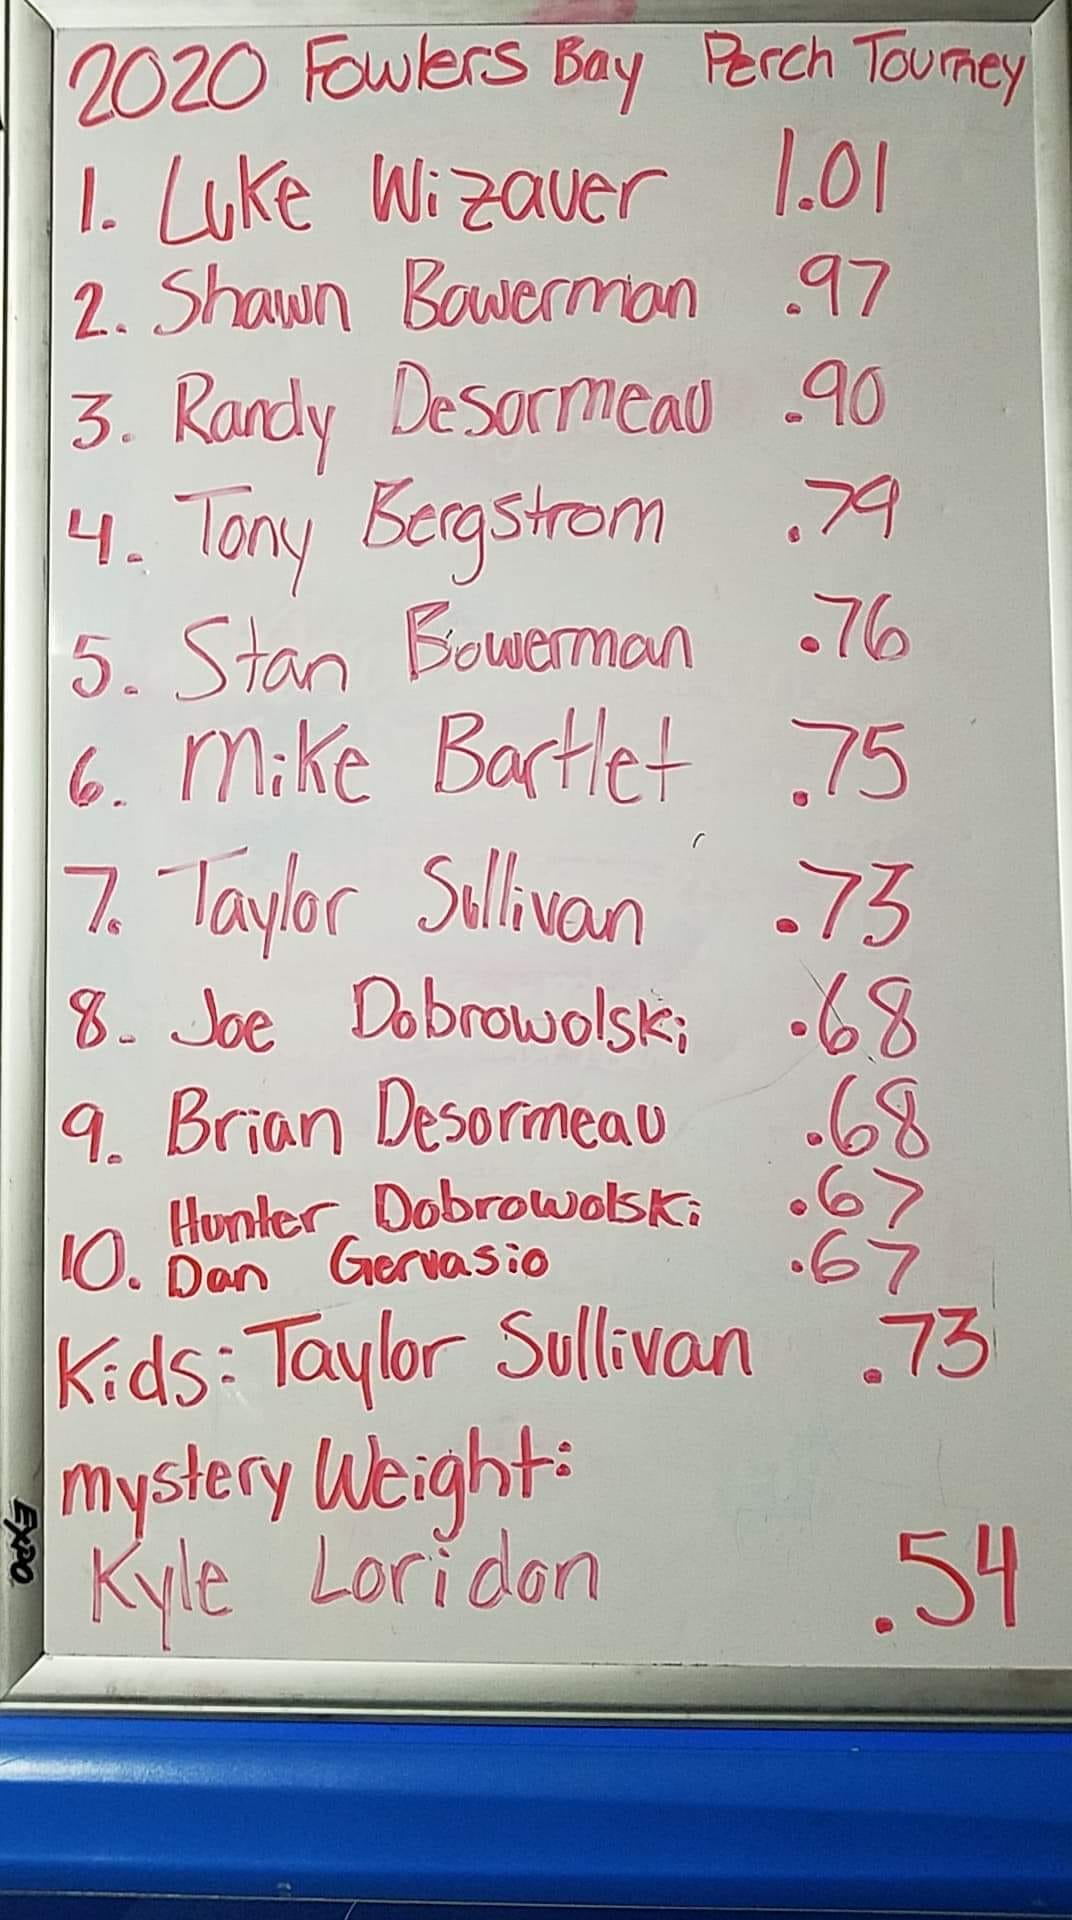 2020 Fowlers Bay Perch Tourney
1. Luke Wizauer 1.01
2. Shawn Bowerman .97
3. Randy Desormeau .90
4. Tony Bergstrom .79
5. Stan Bowerman .76
6. Mike Bartlet .75
7. Taylor Sullivan .73
8. Joe Dobrowolski .68
9. Brian Desormeau .68
Hunter Dobrowolski .67
10. Dan Gervasio .67
Kids: Taylor Sullivan .73
Mystery Weight:
Kyle Loridon .54
EXPO